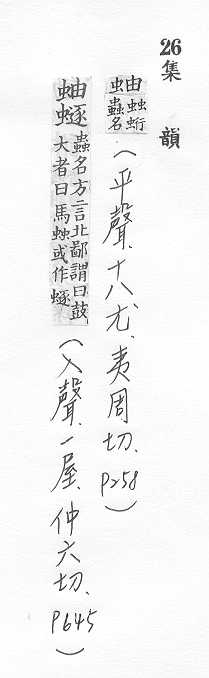 26 集韻
蚰 蚰 蟲名 (平聲、十八尤、夷周切、P258)
蚰 蟲名方言北鄙謂曰鼓大者曰馬蚰或作 (入聲、一屋、仲六切、P645)